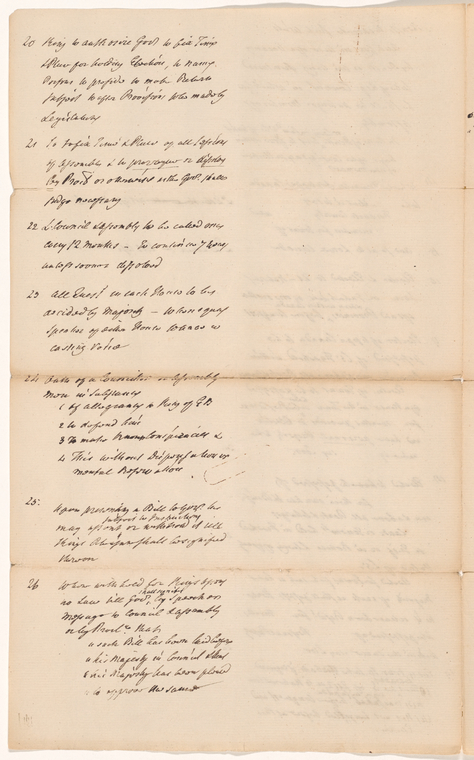 20 King to authorize Govr to fix Time
& Place for holding Elections, to name
Persons to preside & make Returns
subject to such Provisions when made by
Legislature
21 To fix Time & Place of all Sessions
of Assembly & to prorogue or dissolve
by Procl or otherwise when Govr shall
judge necessary
22 L. Council & Assembly to be called once
every 12 Months – to continue Years
unless sooner dissolved
23 All Quest in each House to be
decided by Majority – where equal
Speaker of either House to have a
casting voice
24 Oath of a Councillor or Assembly
Man in Substance
1 of allegiance to King of GB
2 to defend him
3 To make known Conspiracies &
4 This without
mental Reservation
25: Upon presenting a Bill to Govr he
may assent subject to Instructions or withhold it till
Kings shall be signified
thereon
26 When withheld for Kings
no Law till Govr shall signify by Speech or
Message to Council & Assembly
or by Procl that
such Bill has been laid before
his Majesty in Council & that
his Majesty has been pleased
to approve the same